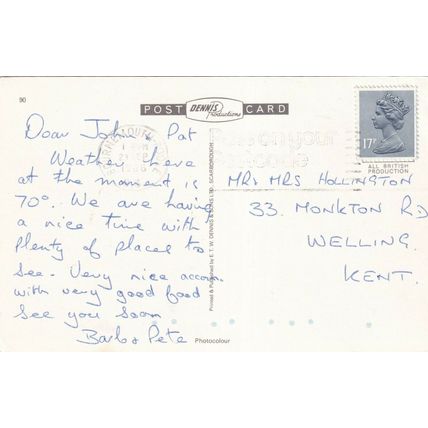 90
POST DENNIS Productions CARD
Dear John & Pat
Weather here
at the moment is
70°. We are having
a nice time with
plenty of places to
see. Very nice accom
with very good food
see you soon
Barb & Pete
Printed & Published by E. T. W. DENNIS & SONS LTD. SCARBOROUGH
Photocolour
BOURNEMOUTH
1986
Pass on your
postcode
17P
ALL BRITISH
PRODUCTION
MR & MRS HOLLINGTON
33. MONKTON RD
WELLING.
KENT.